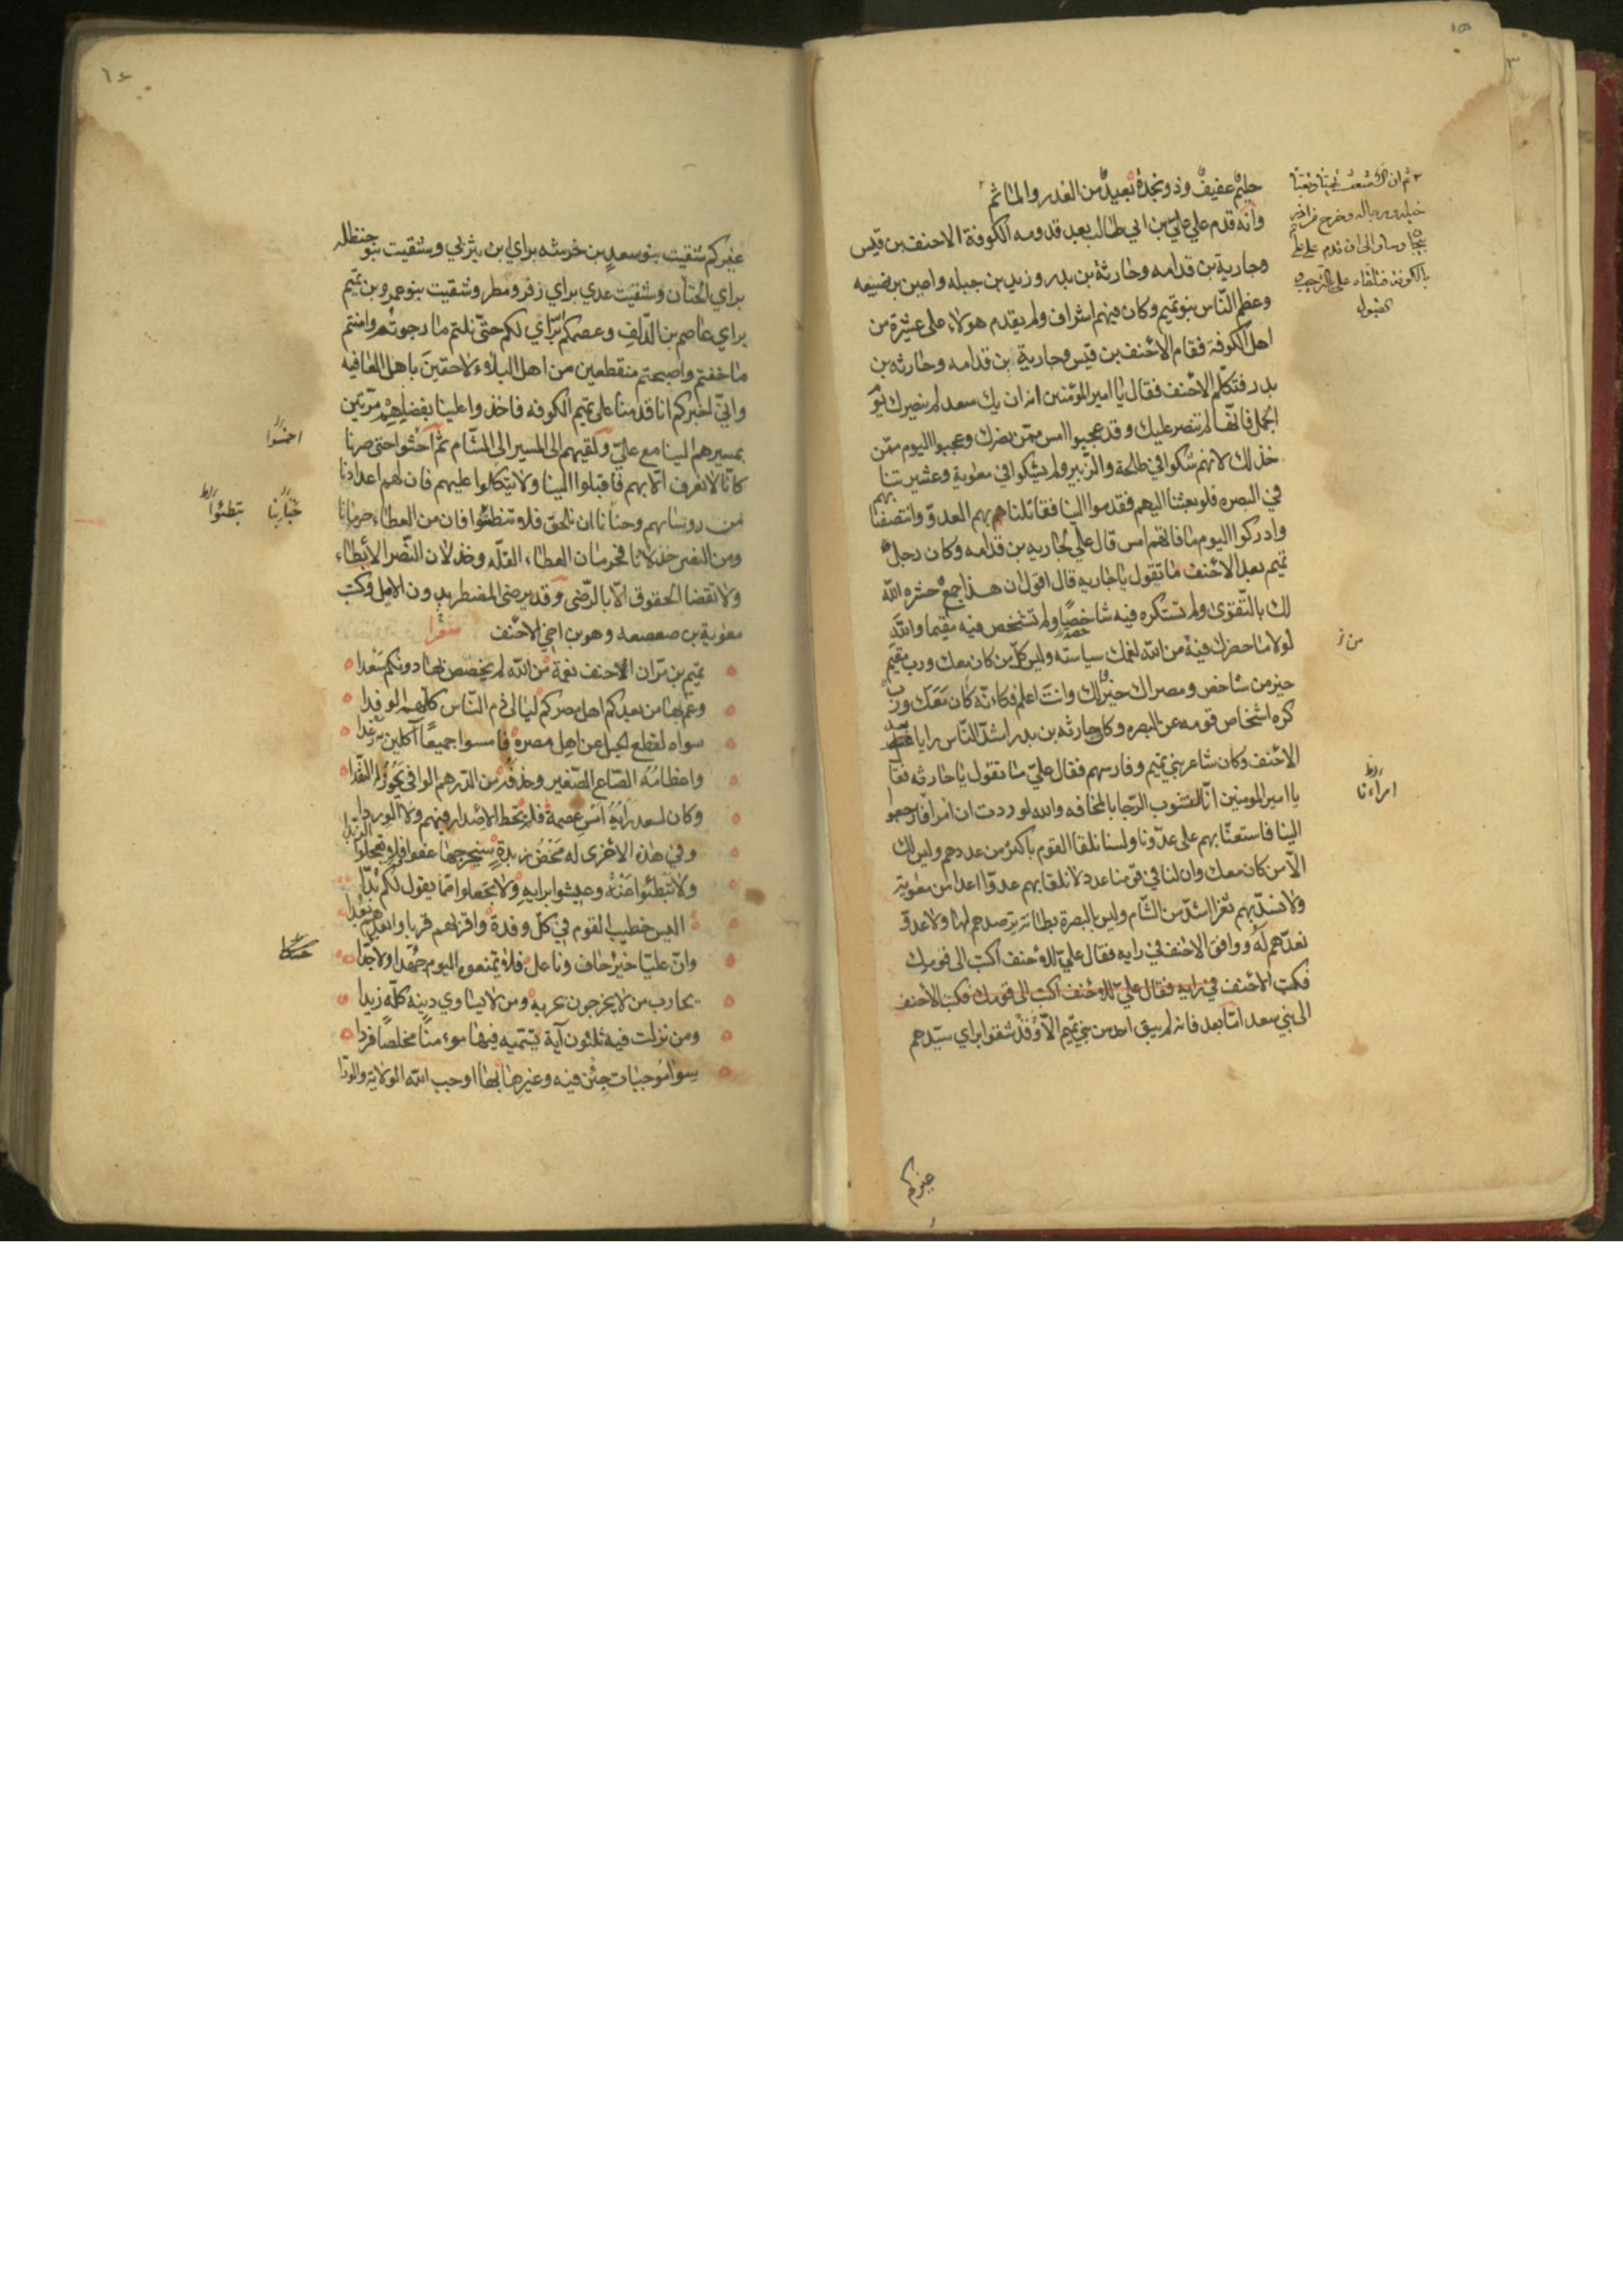 حليم عفيف وذو نجدة بعيد من الغدر والماثم
وانه قدم علي علي بن ابي طالب بعد قدومه الكوفة الاحنف بن قيس
وجارية بن قدامه وحارثة بن بدر وزيد بن جبله واعين بن ضبيعه
وعظم الناس بنو تميم وكان فيهم اشراف ولم يقدم هولاء على عشيرة من
اهل الكوفة فقام الاحنف بن قيس وجارية بن قدامه وحارثه بن
بدر فتكلم الاحنف فقال يا امير المؤمنين انه ان يك سعد لم ينصرك يوم
الجمل فانها لم تنصر عليك وقد عجبوا امس ممن نصرك وعجبوا اليوم ممن
خذلك لانهم شكوا في طلحة والزبير ولم يشكوا في معوية وعشيرتنا
في البصره فلو بعثنا اليهم فقدموا الينا فقاتلنا بهم العدو وانتصفنا بهم
وادركوا اليوم ما فاتهم امس قال علي لجاريه بن قدامه وكان رجل
تميم بعد الاحنف ما تقول يا جاريه قال اقول ان هذا جمع حشره الله
لك بالتقوى ولم تستكره فيه شاخصا ولم تشخص فيه مقيما والله
لولا ما حضرك فيه من الله لغمك سياسته وليس كل من كان معك ورب مقيم
خير من شاخص ومصراك خير لك وانت اعلم فكانه كان معك ورب
كره اشخاص قومه عن البصره وكان حارثه بن بدر اشد الناس رايا عند
الاحنف وكان شاعر بني تميم وفارسهم فقال علي ما تقول يا حارثه فقال
يا امير المومنين انا نشوب الرجا بالمخافه والله لوددت ان امرانا رجعوا
الينا فاستعنا بهم على عدونا ولسنا نلقا القوم باكثر من عددهم وليس لك
الا من كان معك وان لنا في قومنا عدد لا نلقا بهم عدوا اعدا من معوية
ولا نسد بهم ثغرا اشد من الشام وليس بالبصرة بطانة نرصدهم لها ولا عدو
نعدهم له ووافق الاحنف في رايه فقال علي للاحنف اكتب الى قومك
فكتب الاحنف في رايه فقال علي للاحنف اكتب الى قومك فكتب الاحنف
الى بني سعد اما بعد فانه لم يبق احد من بني تميم الا وقد شقوا براي سيدهم
غيركم
من
غيركم شقيت بنو سعد بن خرشه براي ابن يثربي وشقيت بنو حنظله
براي الحتان وشقيت عدي براي زفر ومطر وشقيت بنو عمرو بن تميم
براي عاصم بن الدلف وعصمكم براي لكم حتى نلتم ما رجوتم وامنتم
ما خفتم واصبحتم منقطعين من اهل البلاء لاحقين باهل العافيه
واني اخبركم انا قدمنا على تميم الكوفه فاخذوا علينا بفضلهم مرتين
بمسيرهم الينا مع علي ولقيهم الى المسير الى الشام ثم احثوا حتى صرنا
كانا لا نعرف الا بهم فاقبلوا الينا ولا تتكلوا عليهم فان لهم اعدادنا
من روسايهم وحنانا ان نلحق فلا تبطئوا فان من العطاء حرمانا
ومن النصر خذلانا فحرمان العطاء القله وخذلان النصر الابطاء
ولا تقضا الحقوق الا بالرضى وقد يرضى المضطر بدون الامل وكتب
معوية بن صعصعه وهو بن اخي الاحنف شعرا
تميم بن مر ان الاحنف نعمة من الله لم يخصص بها دونكم سعدا
وعم بها من بعدكم اهل مصركم ليالي ذم الناس كلهم الوفدا
سواه لقطع الحبل عن اهل مصره فامسوا جميعا آكلين به رغدا
واعظامه الصاع الصغير وحذفه من الدرهم الوافي يجوز له النقدا
وكان لسعد رايه امس عصمة فلم يخط الاصدار فيهم ولا الوردا
وفي هذه الاخرى له مخض زبدة سيخرجها عفوا فلا تعجلوا الزبدا
ولا تبطئوا عنه وعيشوا برايه ولا تجعلوا مما يقول لكم بدا
اليس خطيب القوم في كل وفدة واقربهم قربا وابعدهم بعدا
وان عليا خير حاف وناعل فلا تمنعوه اليوم جهدا ولا جدا
يحارب من لا يخرجون بحربه ومن لا يساوي دينه كله زيدا
ومن نزلت فيه ثلثون آية تسميه فيها مومنا مخلصا فردا
سوا موجبات جئن فيه وغيرها بها اوجب الله الولاية والودا